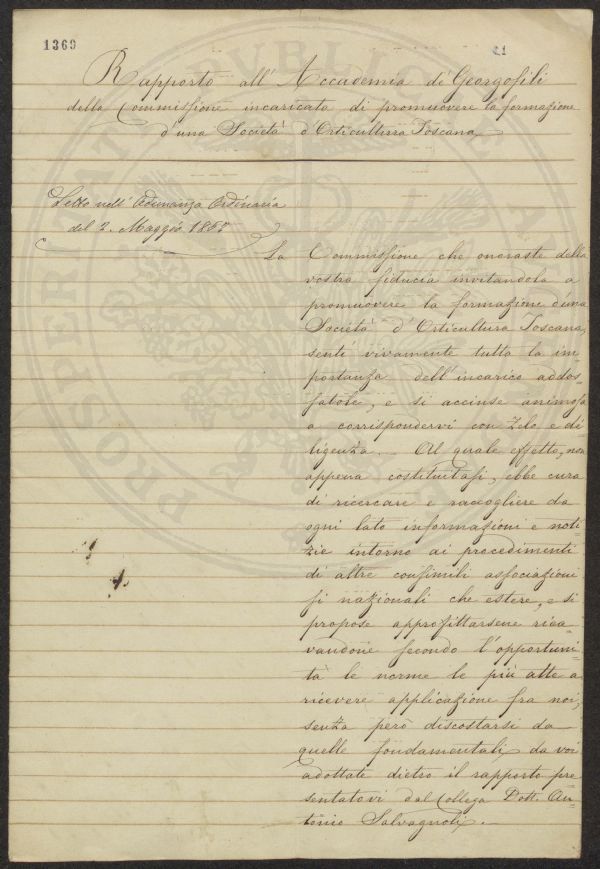 1369
21
Rapporto all'Accademia di Georgofili
della Commissione incaricata di promuovere la formazione
d'una Società d'Orticultura Toscana
Letto nell'Adunanza Ordinaria
del 2. Maggio 1852
La Commissione che onoraste della
vostra fiducia invitandola a
promuovere la formazione d'una
Società d'Orticultura Toscana,
sentì vivamente tutta la im-
portanza dell'incarico addos-
satole, e si accinse animosa
a corrispondervi con zelo e di-
ligenza. - Al quale effetto, non
appena costituitasi, ebbe cura
di ricercare e raccogliere da
ogni lato informazioni e noti-
zie intorno ai procedimenti
di altre consimili associazioni
si nazionali che estere, e si
propose approfittarsene rica-
vandone secondo l'opportuni-
tà le norme le più atte a
ricevere applicazione fra noi,
senza però discostarsi da
quelle fondamentali, da voi
adottate dietro il rapporto pre-
sentatovi dal Collega Dott. An-
tonio Salvagnoli. -